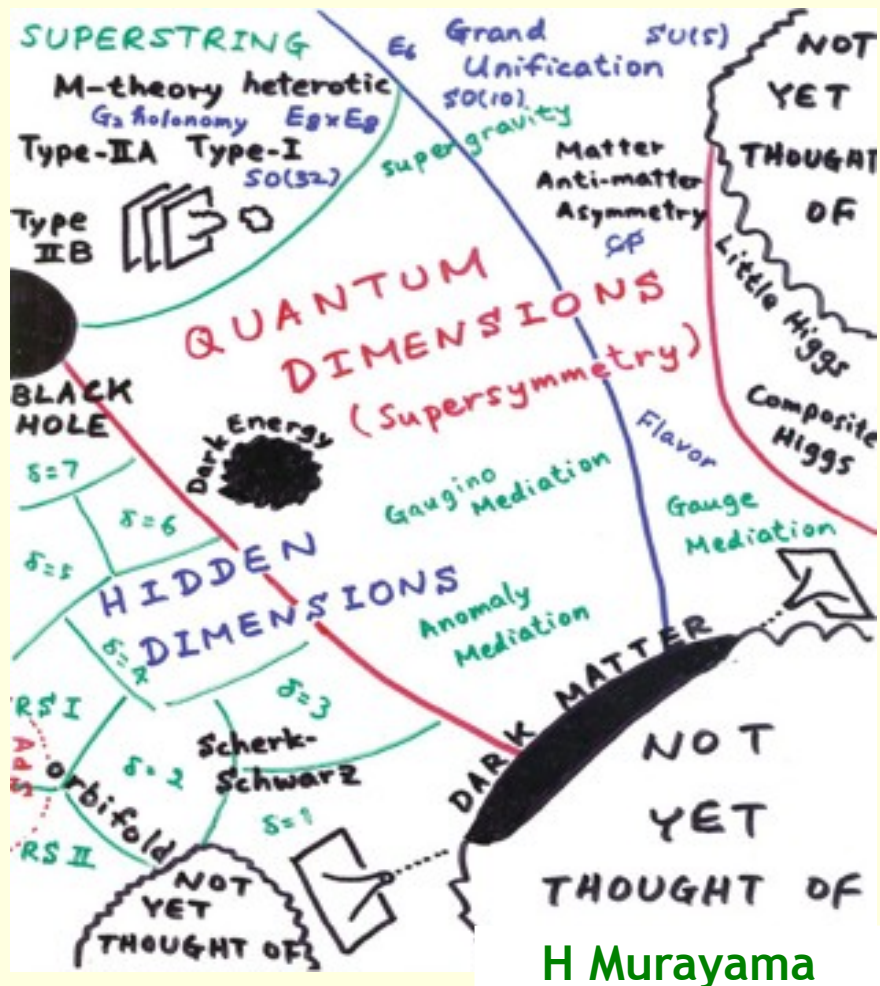 SUPERSTRING
M-theory heterotic
G₂ holonomy E8×E8
Type-IIA Type-I
SO(32)
Type
IIB
E6
Grand
Unification
SU(5)
SO(10)
supergravity
Matter
Anti-matter
Asymmetry
CP
NOT
YET
THOUGHT
OF
Little Higgs
Composite
Higgs
QUANTUM
DIMENSIONS
(Supersymmetry)
BLACK
HOLE
Dark Energy
Flavor
Gaugino
Mediation
Gauge
Mediation
Anomaly
Mediation
δ=7
δ=6
δ=5
HIDDEN
DIMENSIONS
δ=4
δ=3
RS I
AdS
orbifold
δ=2
Scherk-
Schwarz
δ=1
RS II
DARK MATTER
NOT
YET
THOUGHT OF
NOT
YET
THOUGHT OF
H Murayama